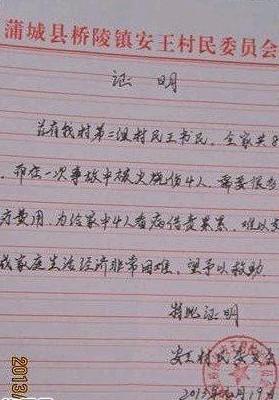 蒲城县桥陵镇安王村民委员会
证 明
兹有我村第二组村民王书民，全家共8
，而在一次事故中被火烧伤4人，需要很多
疗费用，为给家中4人看病借债累累，难以支
成家庭生活经济非常困难，望予以救助
特此证明
安王村民委员会
2013年 月19
2013